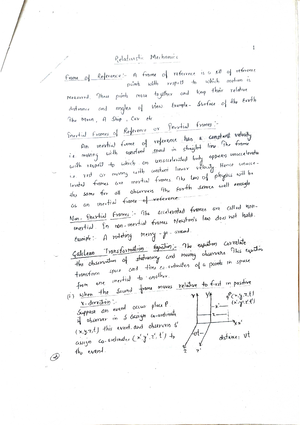 1
Relativistic Mechanics
Frame of Reference:- A frame of reference is a set of reference
points with respect to which motion is
measured. These points move together and keep their relative
distance and angles of view. Example- Surface of the Earth
The Moon, A Ship, Car etc
Inertial Frames of Reference or Inertial Frames:-
An inertial frame of reference has a constant velocity
is moving with constant speed in straight line. The frame
with respect to which an unaccelerated body appears unaccelerated
is rest or moving with constant linear velocity. Hence unacce-
lerated frames are inertial frames. The laws of physics will be
the same for all observers. The Earth serves well enough
as an inertial frame of reference.
Non-Inertial Frames:- The accelerated frames are called non-
inertial. In non-inertial frames Newton's law does not hold.
Example:- A rotating merry-go-round
Galilean Transformation Equation:- The equation correlate
the observation of stationary and moving observers. This equation
transform space and time co-ordinates of a points in space
from one inertial to another.
(i) When the Second frame moves relative to first in positive
x-direction:-
Suppose an event occur place P
if observer in S assign co-ordinate
(x,y,z,t) this event and observer S'
assign co-ordinates (x' y', z', t') to
the event.
Y
Y'
P(x,y,z,t)
(x',y',z',t')
X X'
Z
Z'
distance = vt